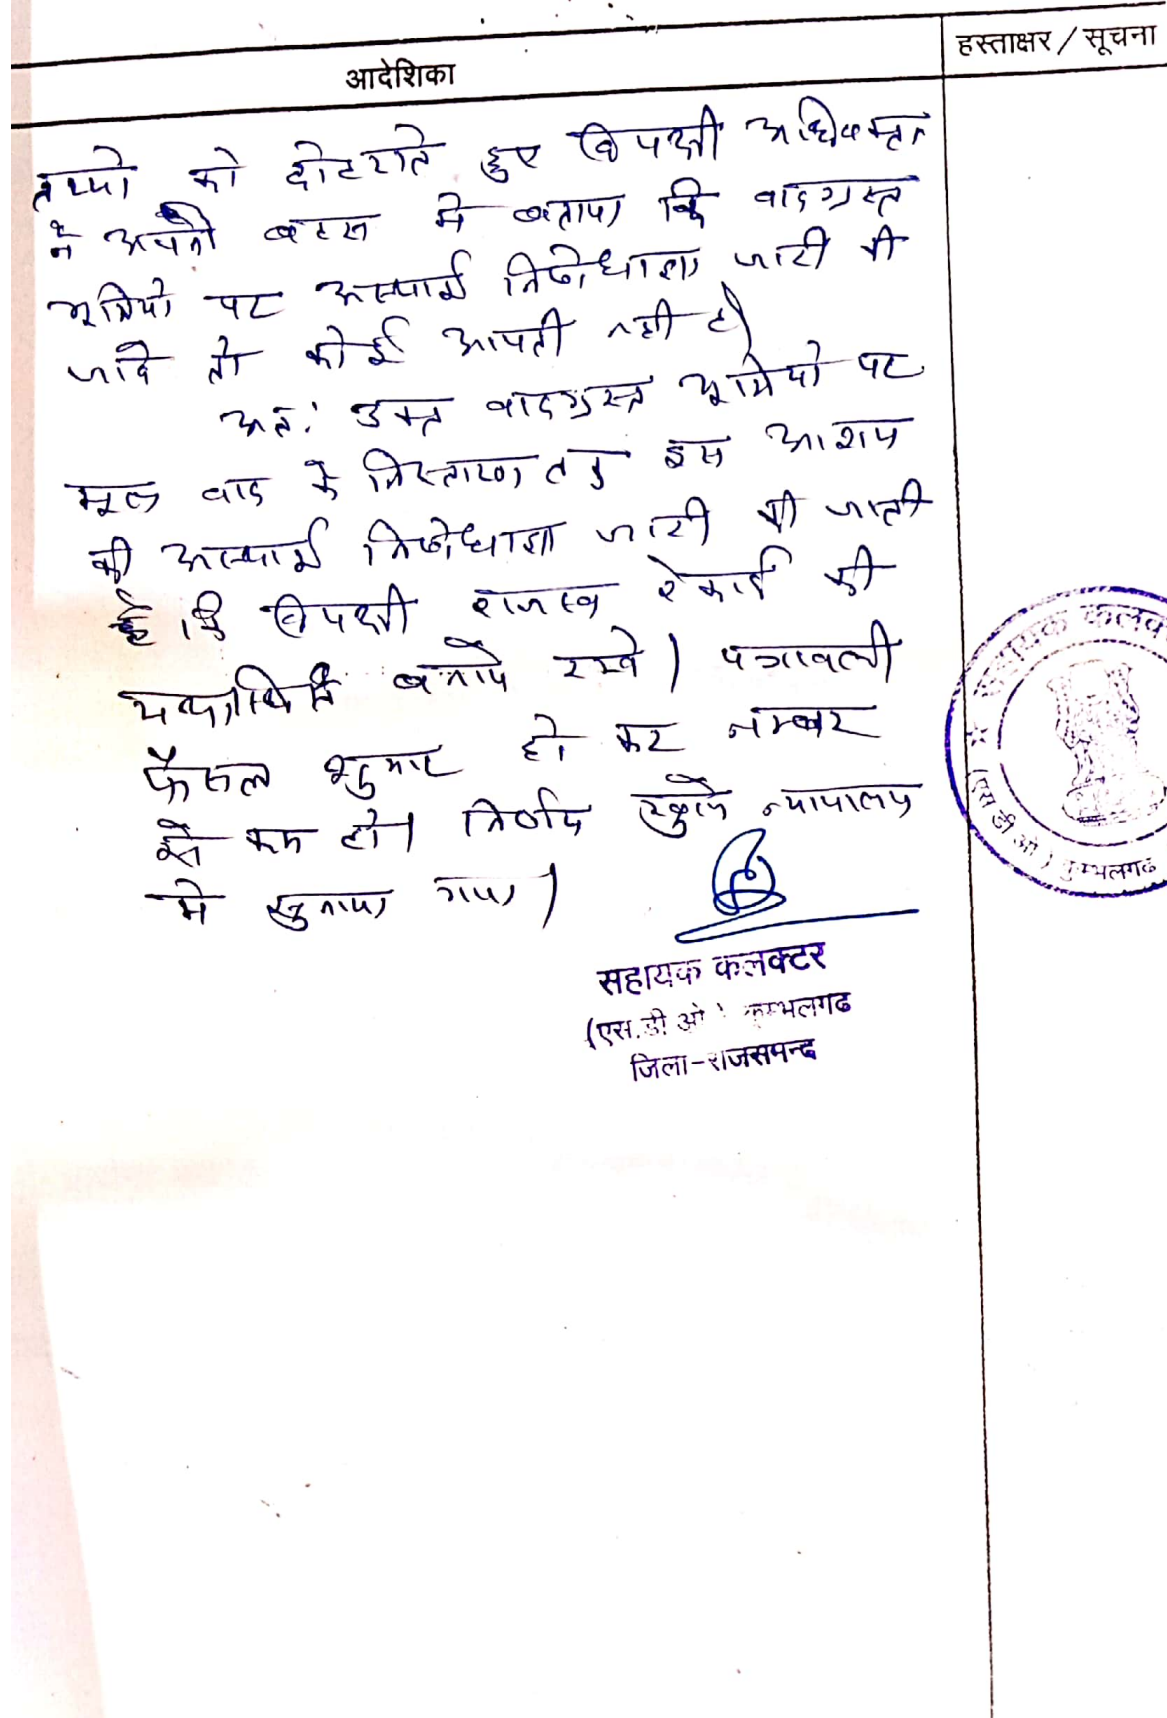 आदेशिका
हस्ताक्षर / सूचना
तथ्यो को दोहराते हुए विपक्षी अधिवक्ता
ने अपनी बहस मे बताया कि वादग्रस्त
भूमियो पर अस्थाई निषेधाज्ञा जारी की
जावे तो कोई आपती नही है।
अत: उक्त वादग्रस्त भूमियो पर
मूल वाद के निस्तारण तक इस आशय
की अस्थाई निषेधाज्ञा जारी की जाती
है कि विपक्षी राजस्व रेकार्ड की
यथास्थिति बनाये रखे। पत्रावली
फैसल शुमार हो कर नम्बर
से कम हो। निर्णय खुले न्यायालय
मे सुनाया गया।
सहायक कलक्टर
(एस.डी.ओ.) कुम्भलगढ
जिला-राजसमन्द
सहायक कलक
(एस डी ओ) कुम्भलगढ